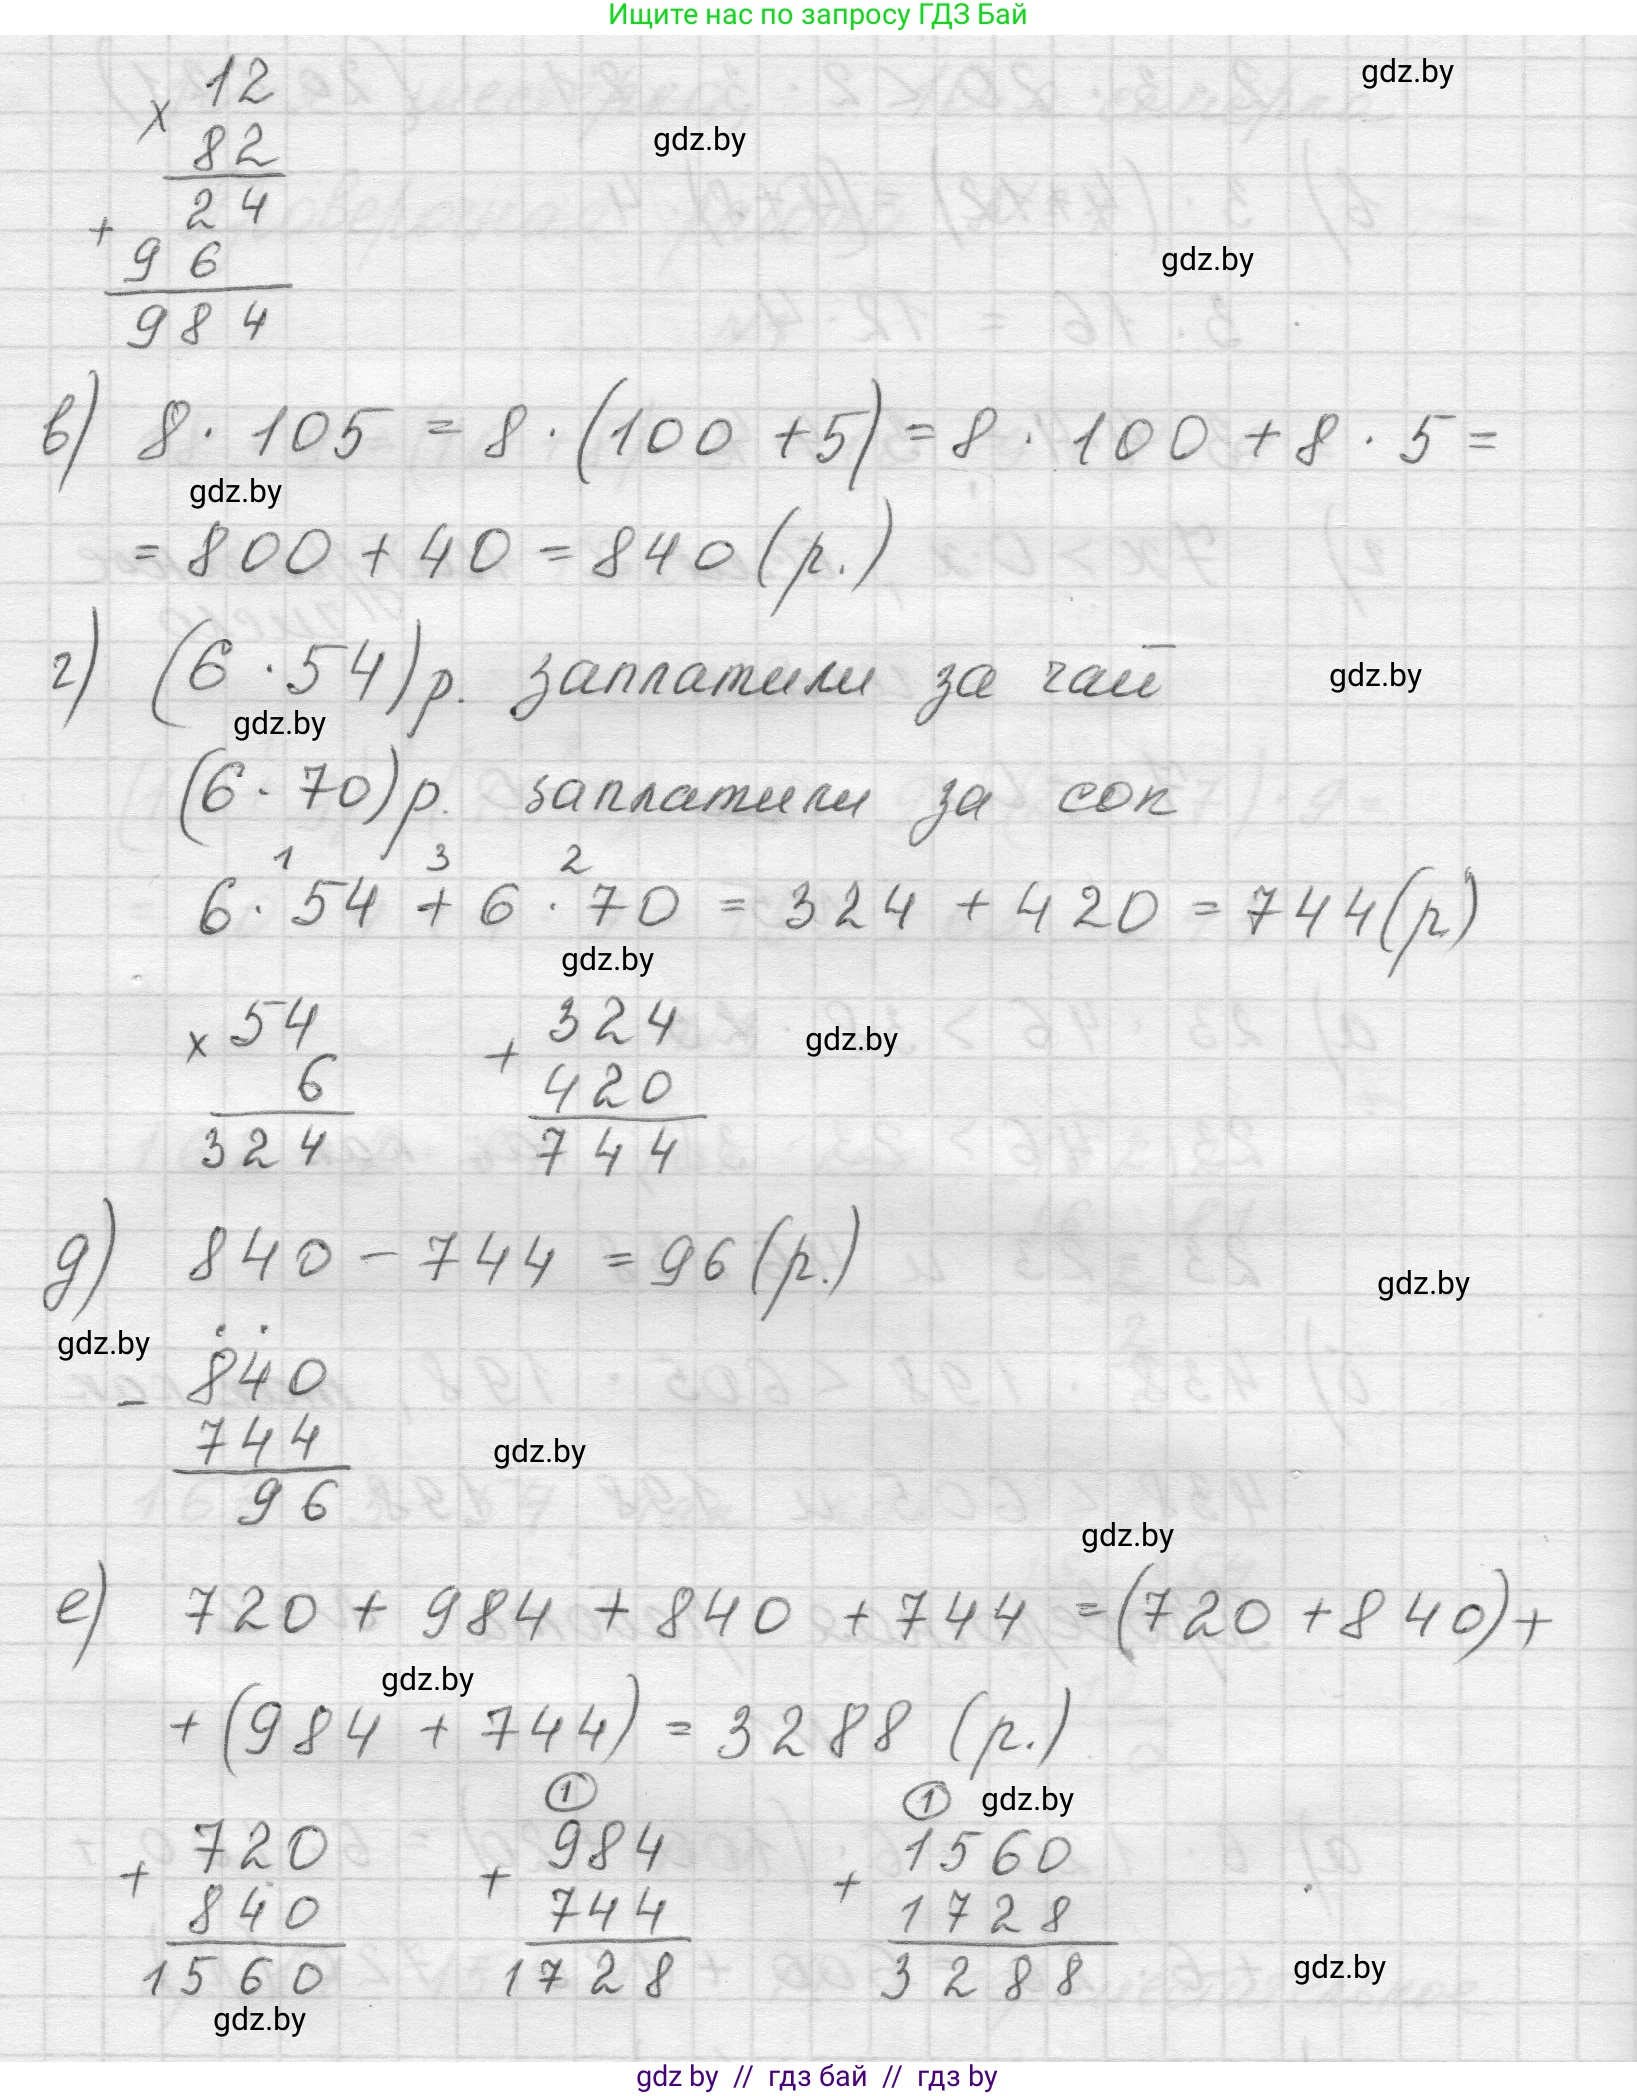 Ищите нас по запросу ГДЗ Бай
gdz.by
12
×
gdz.by
82
24
+
96
gdz.by
984
в) 8 · 105 = 8 · (100 + 5) = 8 · 100 + 8 · 5 =
gdz.by
= 800 + 40 = 840 (р.)
г) (6 · 54) р. заплатили за чай
gdz.by
gdz.by
(6 · 70) р. заплатили за сок
1 3 2
6 · 54 + 6 · 70 = 324 + 420 = 744 (р.)
gdz.by
× 54 + 324
gdz.by
6 420
324 744
д) 840 - 744 = 96 (р.)
gdz.by
gdz.by
- 840
744
gdz.by
96
gdz.by
е) 720 + 984 + 840 + 744 = (720 + 840) +
gdz.by
+ (984 + 744) = 3288 (р.)
1 1
gdz.by
+ 720 + 984 + 1560
840 744 1728
1560 1728 3288
gdz.by
gdz.by
gdz by // гдз бай // гдз by